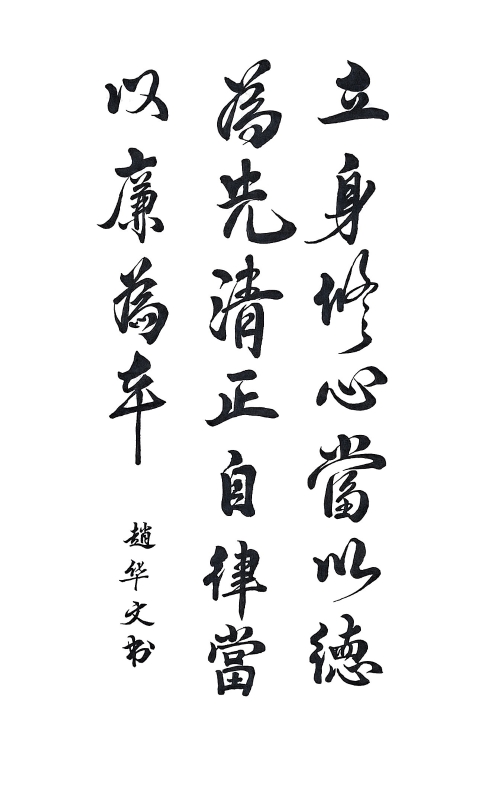 立身修心當以德
為先清正自律當
以廉為本
趙华文书